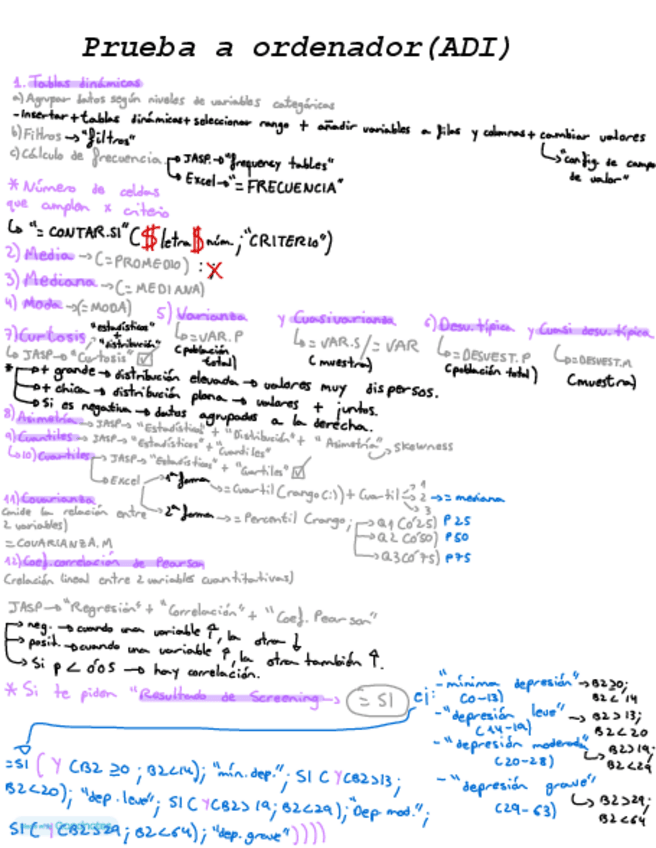 Prueba a ordenador(ADI)
1. Tablas dinámicas
a) Agrupar datos según niveles de variables categóricas
- Insertar + tablas dinámicas + seleccionar rango + añadir variables a filas y columnas + cambiar valores
↳ "config. de campo de valor"
b) Filtros → "filtros"
c) Cálculo de frecuencia → JASP → "frequency tables"
↳ Excel → "= FRECUENCIA"
* Número de celdas
que cumplen x criterio
↳ "= CONTAR.SI" ($letra$núm; "CRITERIO")
2) Media → (=PROMEDIO) : X
3) Mediana → (=MEDIANA)
4) Moda → (=MODA)
5) Varianza y Cuasivarianza
↳ = VAR.P
(población total)
↳ = VAR.S / = VAR
(muestra)
6) Desv. típica y Cuasi desv. típica
↳ = DESVEST.P
(población total)
↳ = DESVEST.M
(muestra)
7) Curtosis "estadísticos"
"distribución"
↳ JASP → "Curtosis" ☑
* → + grande → distribución elevada → valores muy dispersos.
→ + chica → distribución plana → valores + juntos.
→ Si es negativa → datos agrupados a la derecha.
8) Asimetría → JASP → "Estadísticos" + "Distribución" + "Asimetría" → Skewness
9) Cuantiles → JASP → "Estadísticos" + "Cuantiles"
↳ 10) Cuartiles → JASP → "Estadísticos" + "Cuartiles" ☑
→ Excel → 1ª forma → = Cuartil (rango (:)) + Cuartil → 1
→ 2 → = mediana
→ 3
→ 2ª forma → = Percentil (rango; → Q1 (0'25) P25
→ Q2 (0'50) P50
→ Q3 (0'75) P75
11) Covarianza
(mide la relación entre
2 variables)
= COVARIANZA.M
12) Coef. correlación de Pearson
(relación lineal entre 2 variables cuantitativas)
JASP → "Regresión" + "Correlación" + "Coef. Pearson"
→ neg. → cuando una variable ↑, la otra ↓
→ posit. → cuando una variable ↑, la otra también ↑.
→ Si p < 0'05 → hay correlación.
* Si te piden "Resultado de Screening → = SI
ej: - "mínima depresión" → B2≥0;
(0-13) B2<14
- "depresión leve" → B2>13;
(14-19) B2<20
- "depresión moderada" → B2>19;
(20-28) B2<29
- "depresión grave" → B2>29;
(29-63) B2<64
=SI ( Y (B2 ≥0 ; B2<14); "mín.dep."; SI ( Y (B2>13;
B2<20); "dep. leve"; SI ( Y (B2>19; B2<29); "Dep mod.";
SI ( Y (B2>29; B2<64); "dep. grave"))))